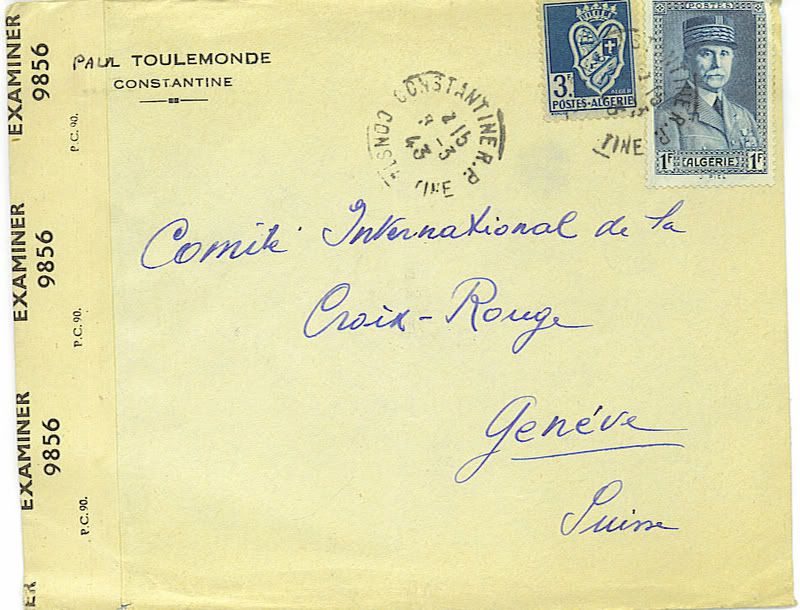 EXAMINER 9856
P.C. 90.
EXAMINER 9856
P.C. 90.
EXAMINER 9856
P.C. 90.
ER
PAUL TOULEMONDE
CONSTANTINE
CONSTANTINE R.P.
15
-3
43
3F.
ALGER
POSTES-ALGERIE
POSTES
1F ALGÉRIE 1F
TINE
Comité International de la
Croix-Rouge
Genéve
Suisse